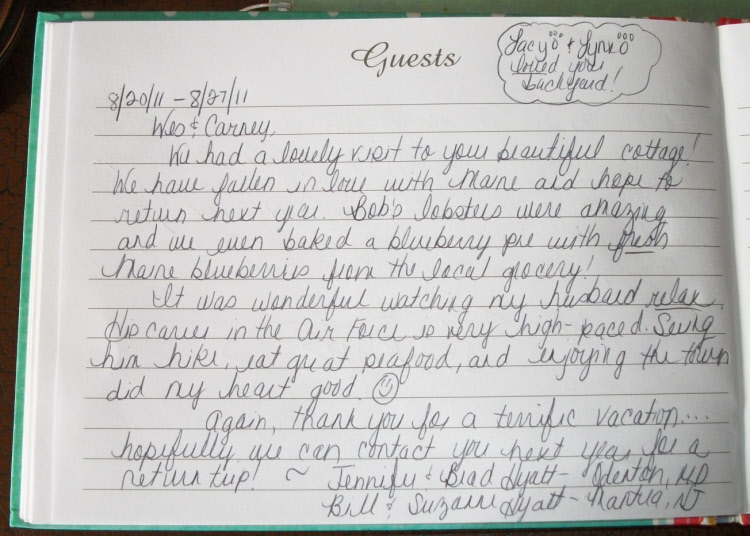 Guests
Lacy & Lynx
loved your
backyard!
8/20/11 - 8/27/11
Wes & Carney,
We had a lovely visit to your beautiful cottage!
We have fallen in love with Maine and hope to
return next year. Bob's lobsters were amazing
and we even baked a blueberry pie with fresh
Maine blueberries from the local grocery!
It was wonderful watching my husband relax.
His career in the Air Force is very high-paced. Seeing
him hike, eat great seafood, and enjoying the town
did my heart good. ☺
Again, thank you for a terrific vacation...
hopefully we can contact you next year for a
return trip! ~ Jennifer & Brad Hyatt - Odenton, MD
Bill & Suzanne Hyatt - Mantua, NJ